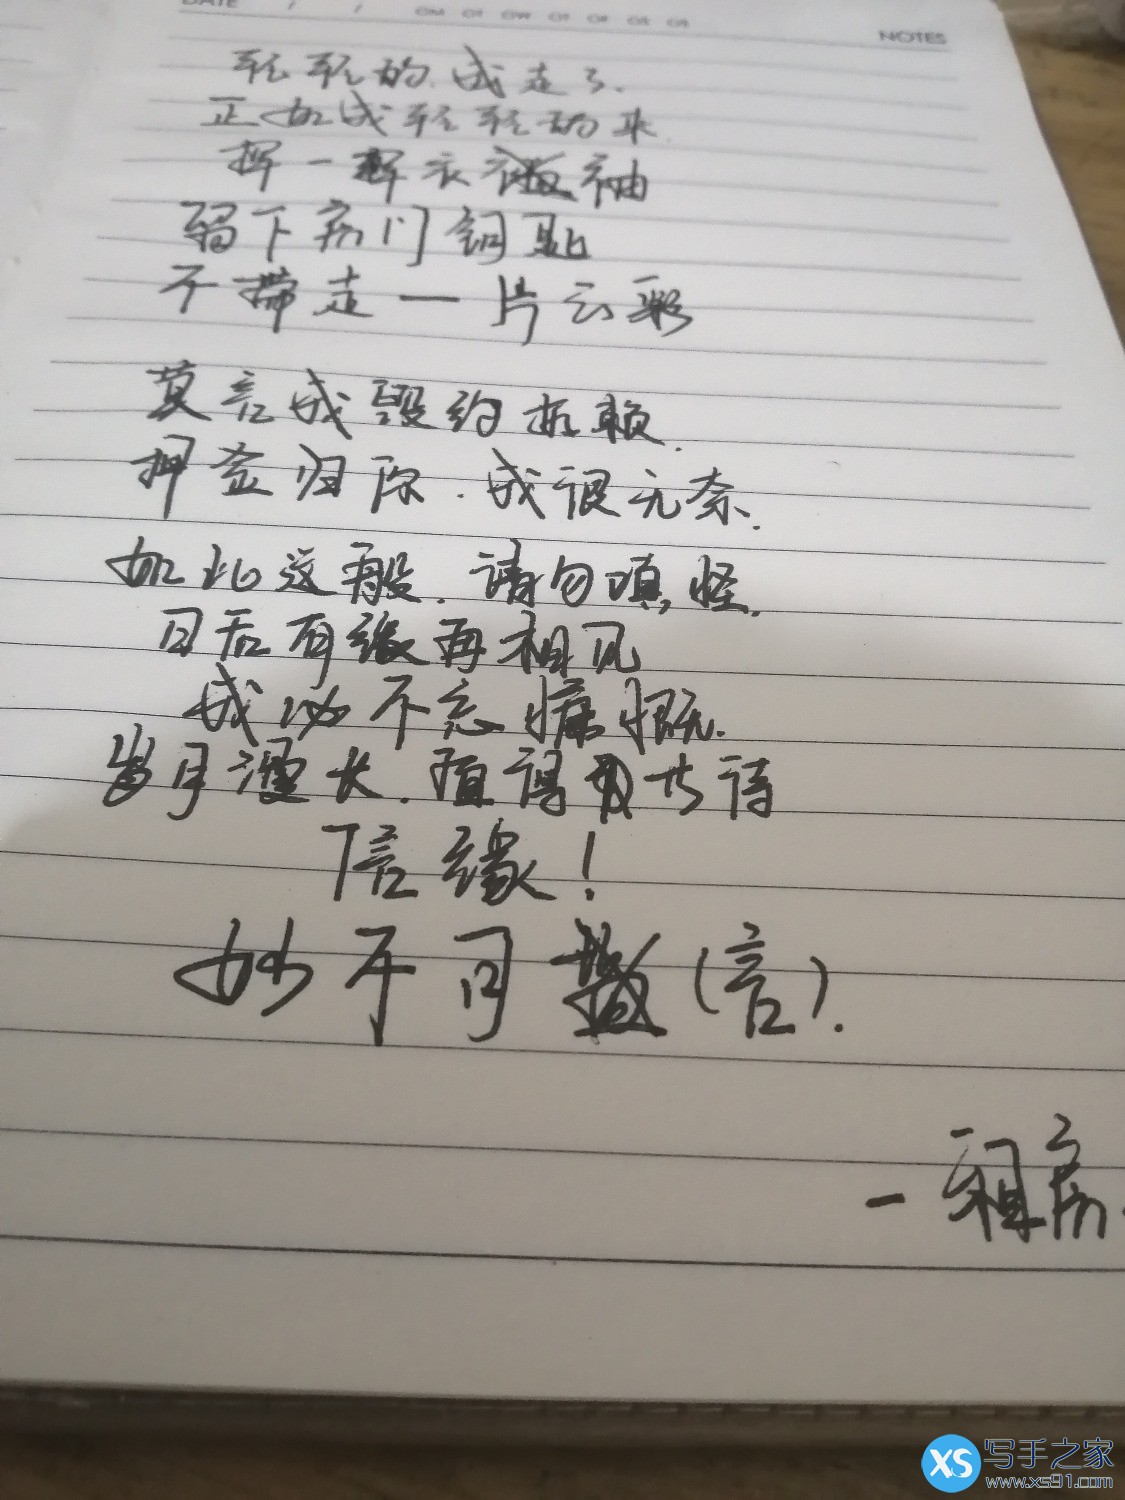 DATE / /
NOTES
轻轻的.我走了.
正如我轻轻的来
挥一挥衣袖
留下房门钥匙
不带走一片云彩
莫言我毁约抵赖.
押金归你.我很无奈.
如此这般.请勿嗔怪.
日后有缘再相见
我必不忘慷慨.
岁月漫长.值得期待
信缘！
妙不可(言).
一 租房
XS 写手之家
www.xs91.com